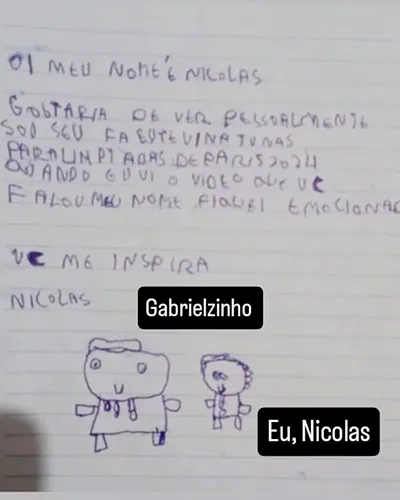 OI MEU NOME É NICOLAS
GOSTARIA DE VER PESSOALMENTE
SOU SEU FA E DTE VI NA TUDAS
PARALIMPIADAS DE PARIS 2024
QUANDO EU VI O VIDEO QUE VC
FALOU MEU NOME FIQUEI EMOCIONAD
VC ME INSPIRA
NICOLAS
Gabrielzinho
Eu, Nicolas